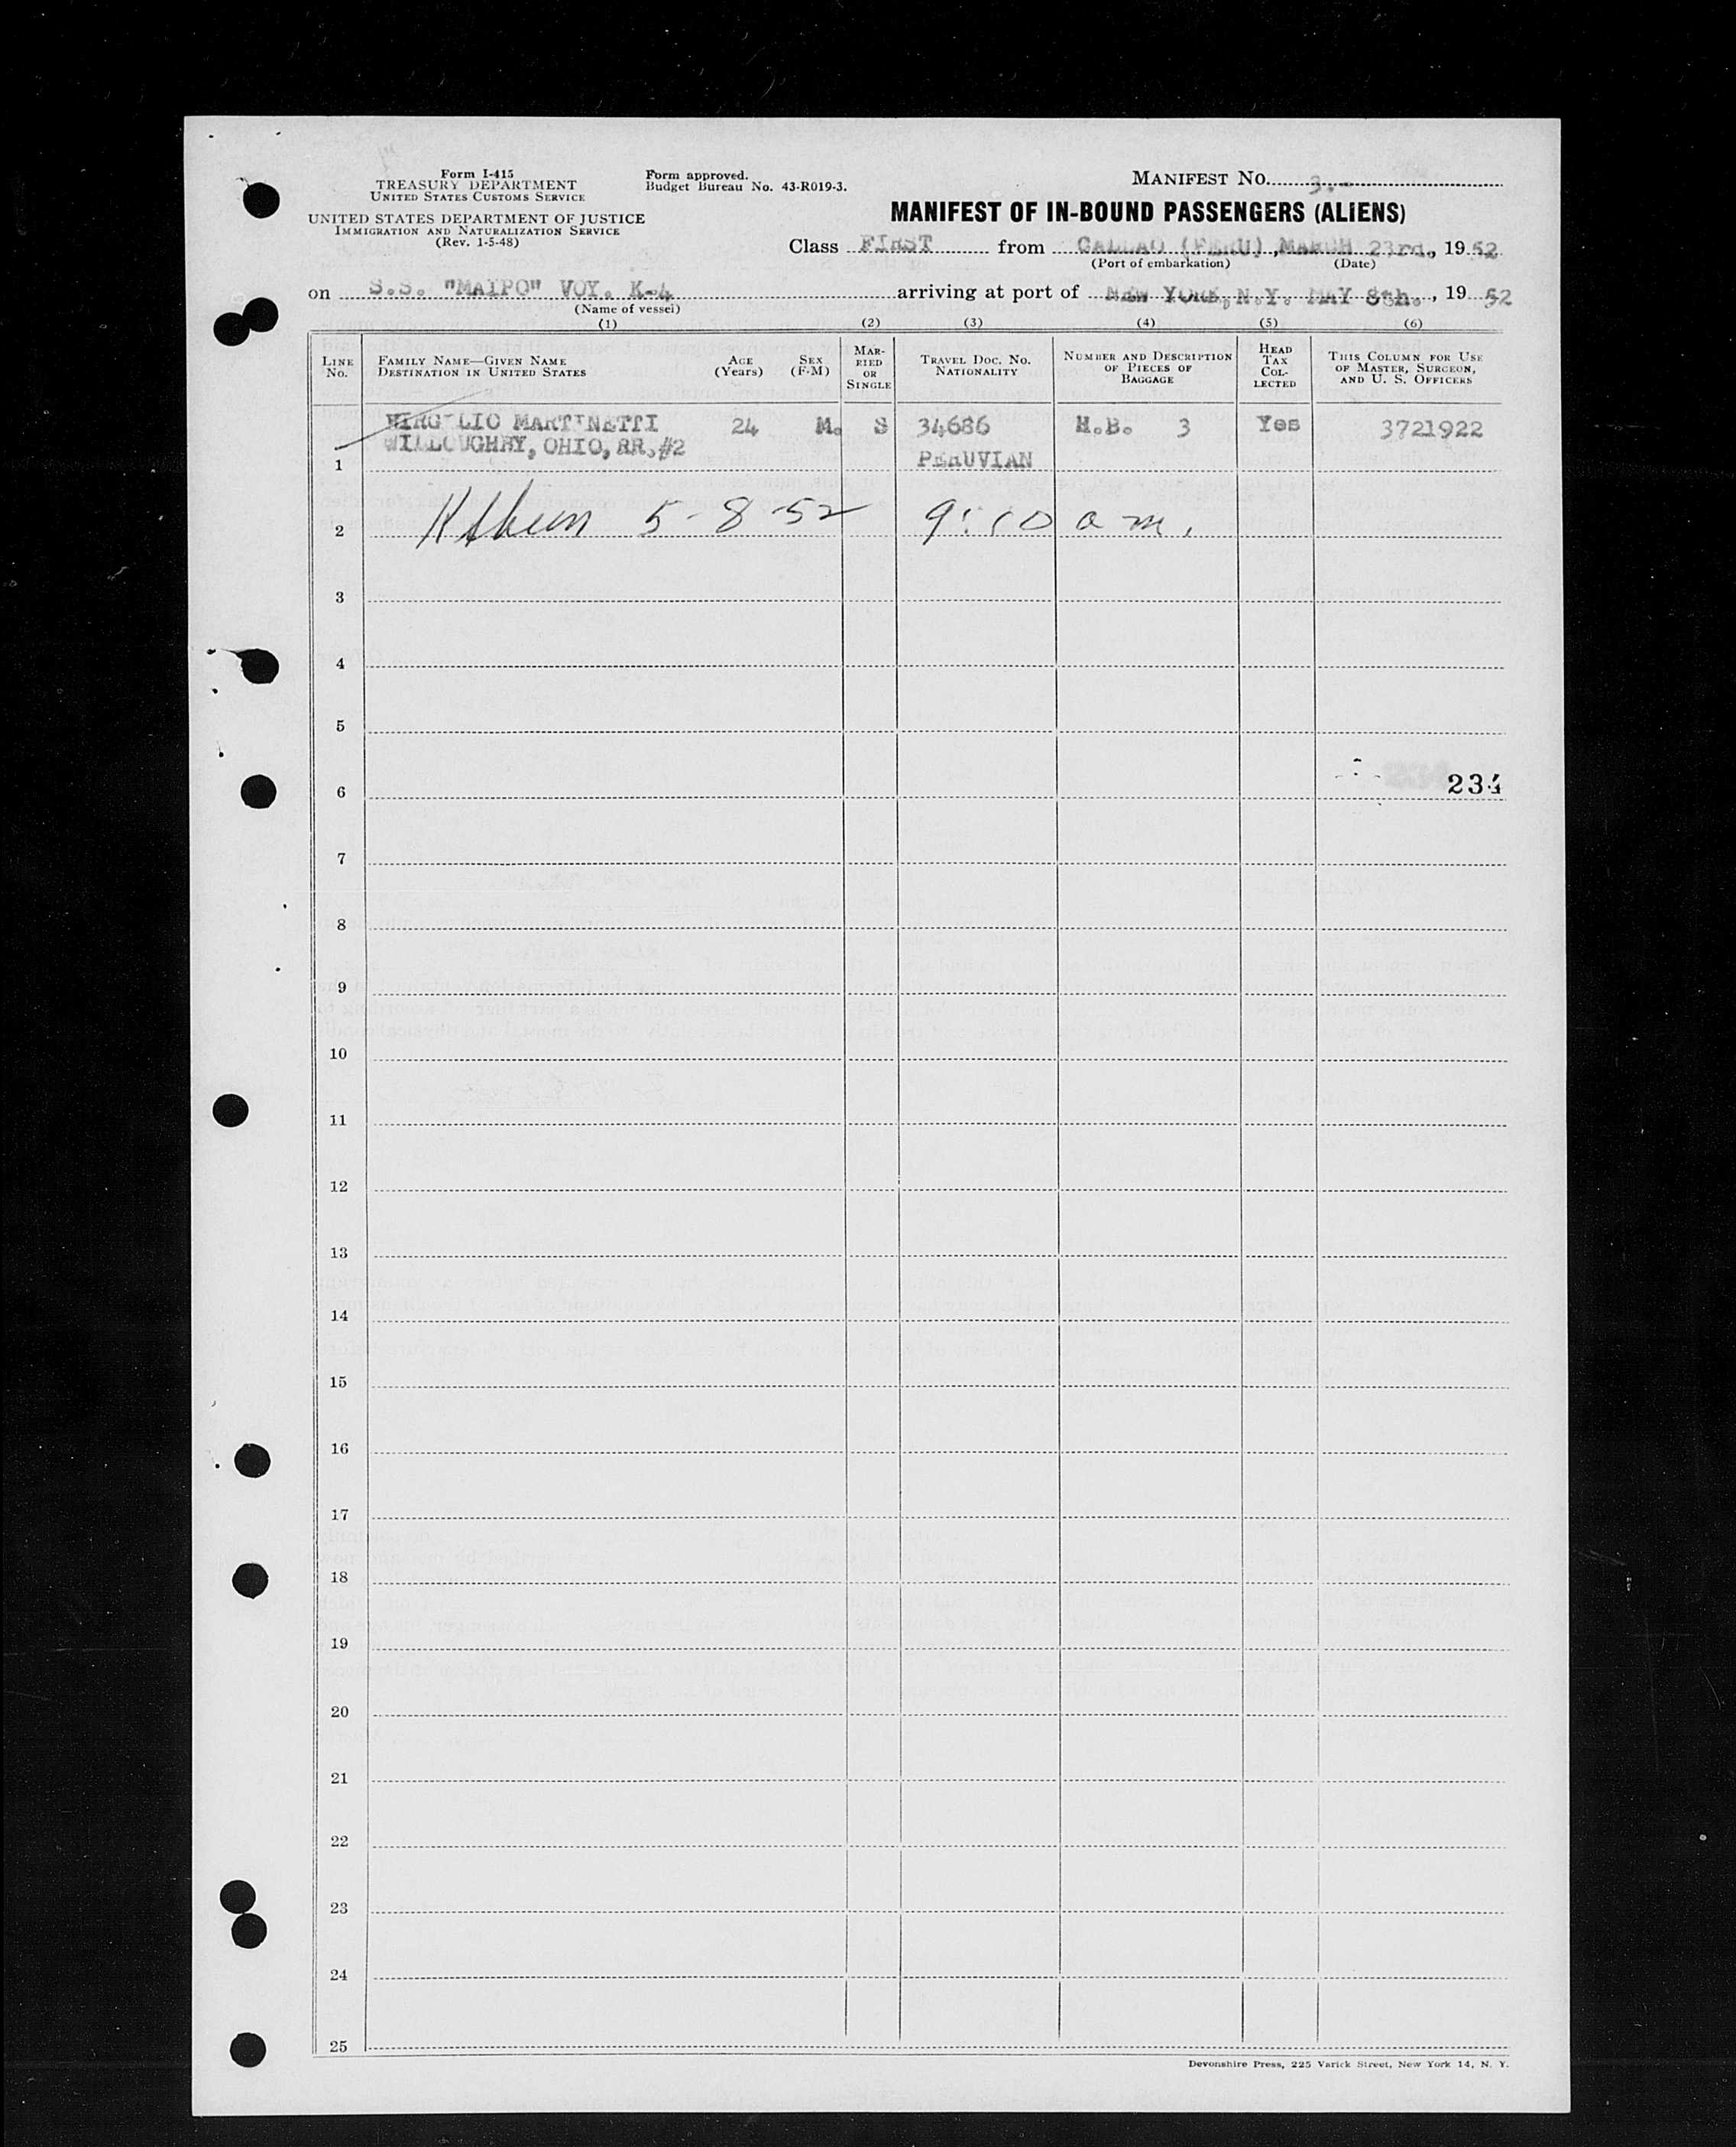 Form I-415
TREASURY DEPARTMENT
UNITED STATES CUSTOMS SERVICE
UNITED STATES DEPARTMENT OF JUSTICE
IMMIGRATION AND NATURALIZATION SERVICE
(Rev. 1-5-48)
Form approved.
Budget Bureau No. 43-R019-3.
MANIFEST NO. 3.-
MANIFEST OF IN-BOUND PASSENGERS (ALIENS)
Class FIRST from CALLAO (PERU), MARCH 23rd., 1952
(Port of embarkation) (Date)
on S.S. "MAIPO" VOY. K-4 arriving at port of NEW YORK, N.Y. MAY 8th., 1952
(Name of vessel)
(1) (2) (3) (4) (5) (6)
LINE No. FAMILY NAME—GIVEN NAME DESTINATION IN UNITED STATES AGE (Years) SEX (F-M) MARRIED OR SINGLE TRAVEL DOC. NO. NATIONALITY NUMBER AND DESCRIPTION OF PIECES OF BAGGAGE HEAD TAX COLLECTED THIS COLUMN FOR USE OF MASTER, SURGEON, AND U. S. OFFICERS
VIRGILIO MARTINETTI 24 M. S 34686 H.B. 3 Yes 3721922
WILLOUGHBY, OHIO, RR.#2
1 PERUVIAN
2 5-8-52 9:10 a m.
3
4
5
6 234
7
8
9
10
11
12
13
14
15
16
17
18
19
20
21
22
23
24
25
Devonshire Press, 225 Varick Street, New York 14, N. Y.